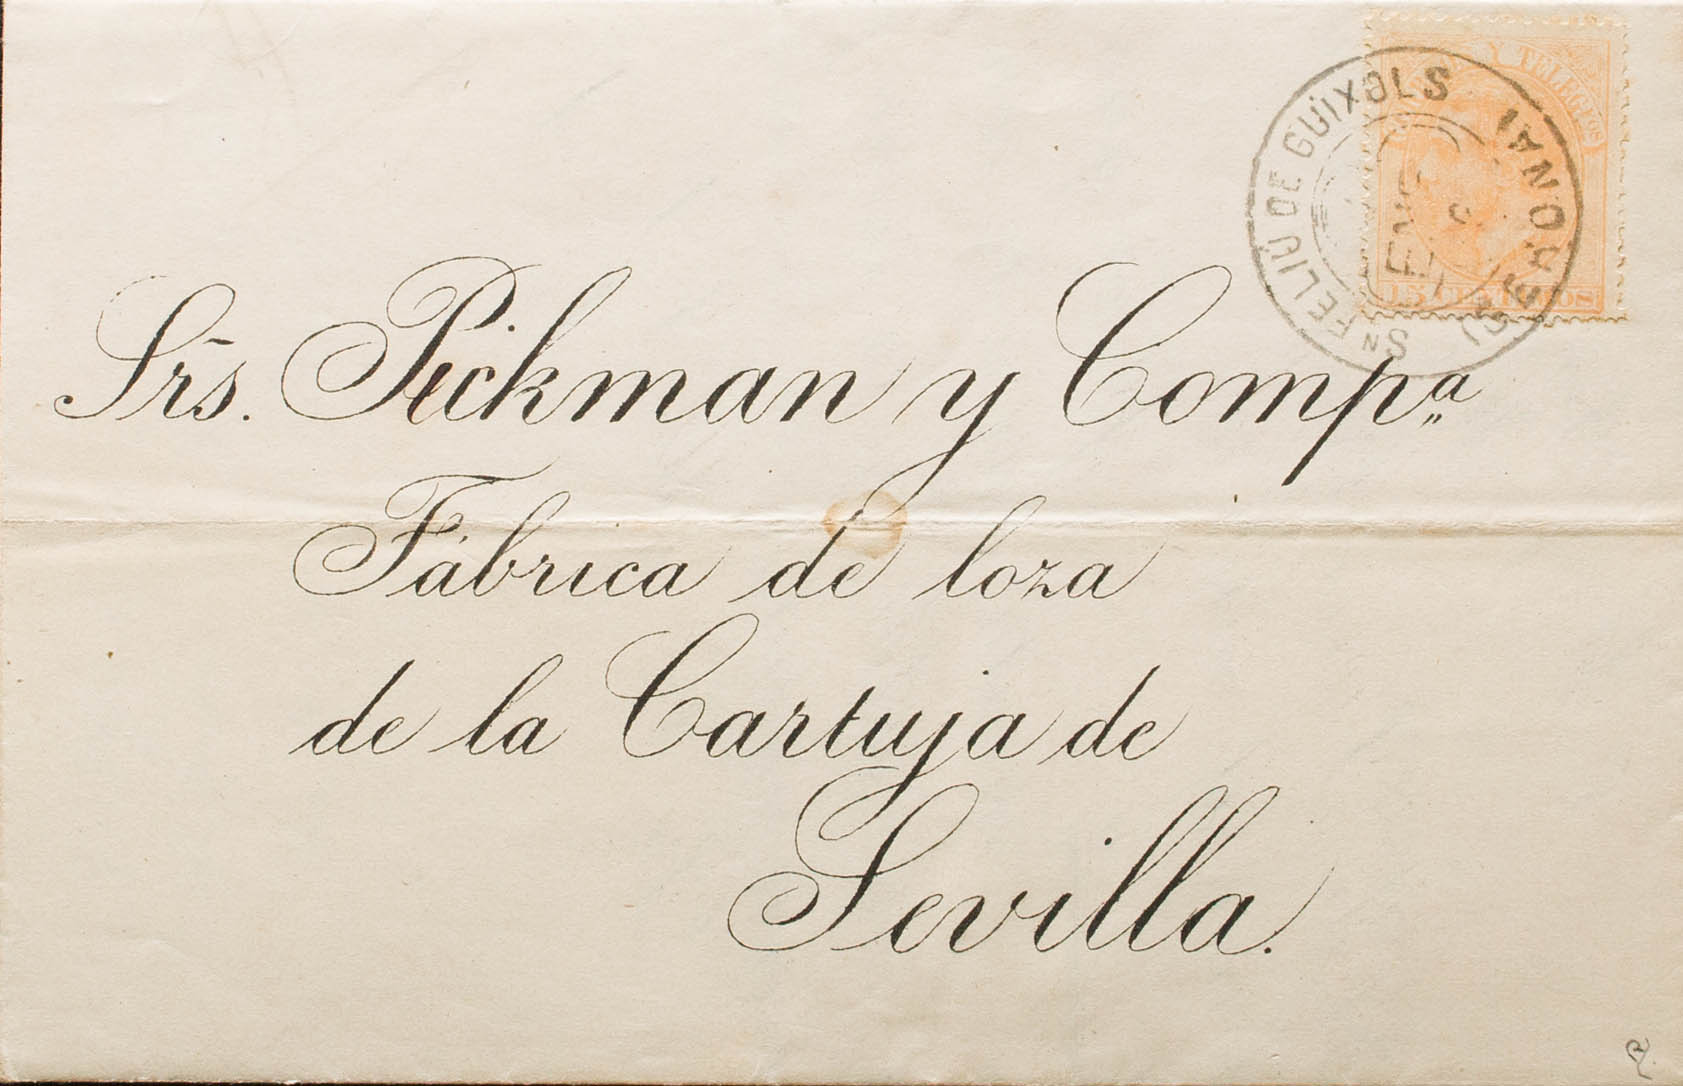 Srs. Pickman y Compª
Fábrica de loza
de la Cartuja de
Sevilla.
Sⁿ FELIU DE GUIXOLS
(GERONA)
ENE
Y TELEGFOS
15 CENTIMOS